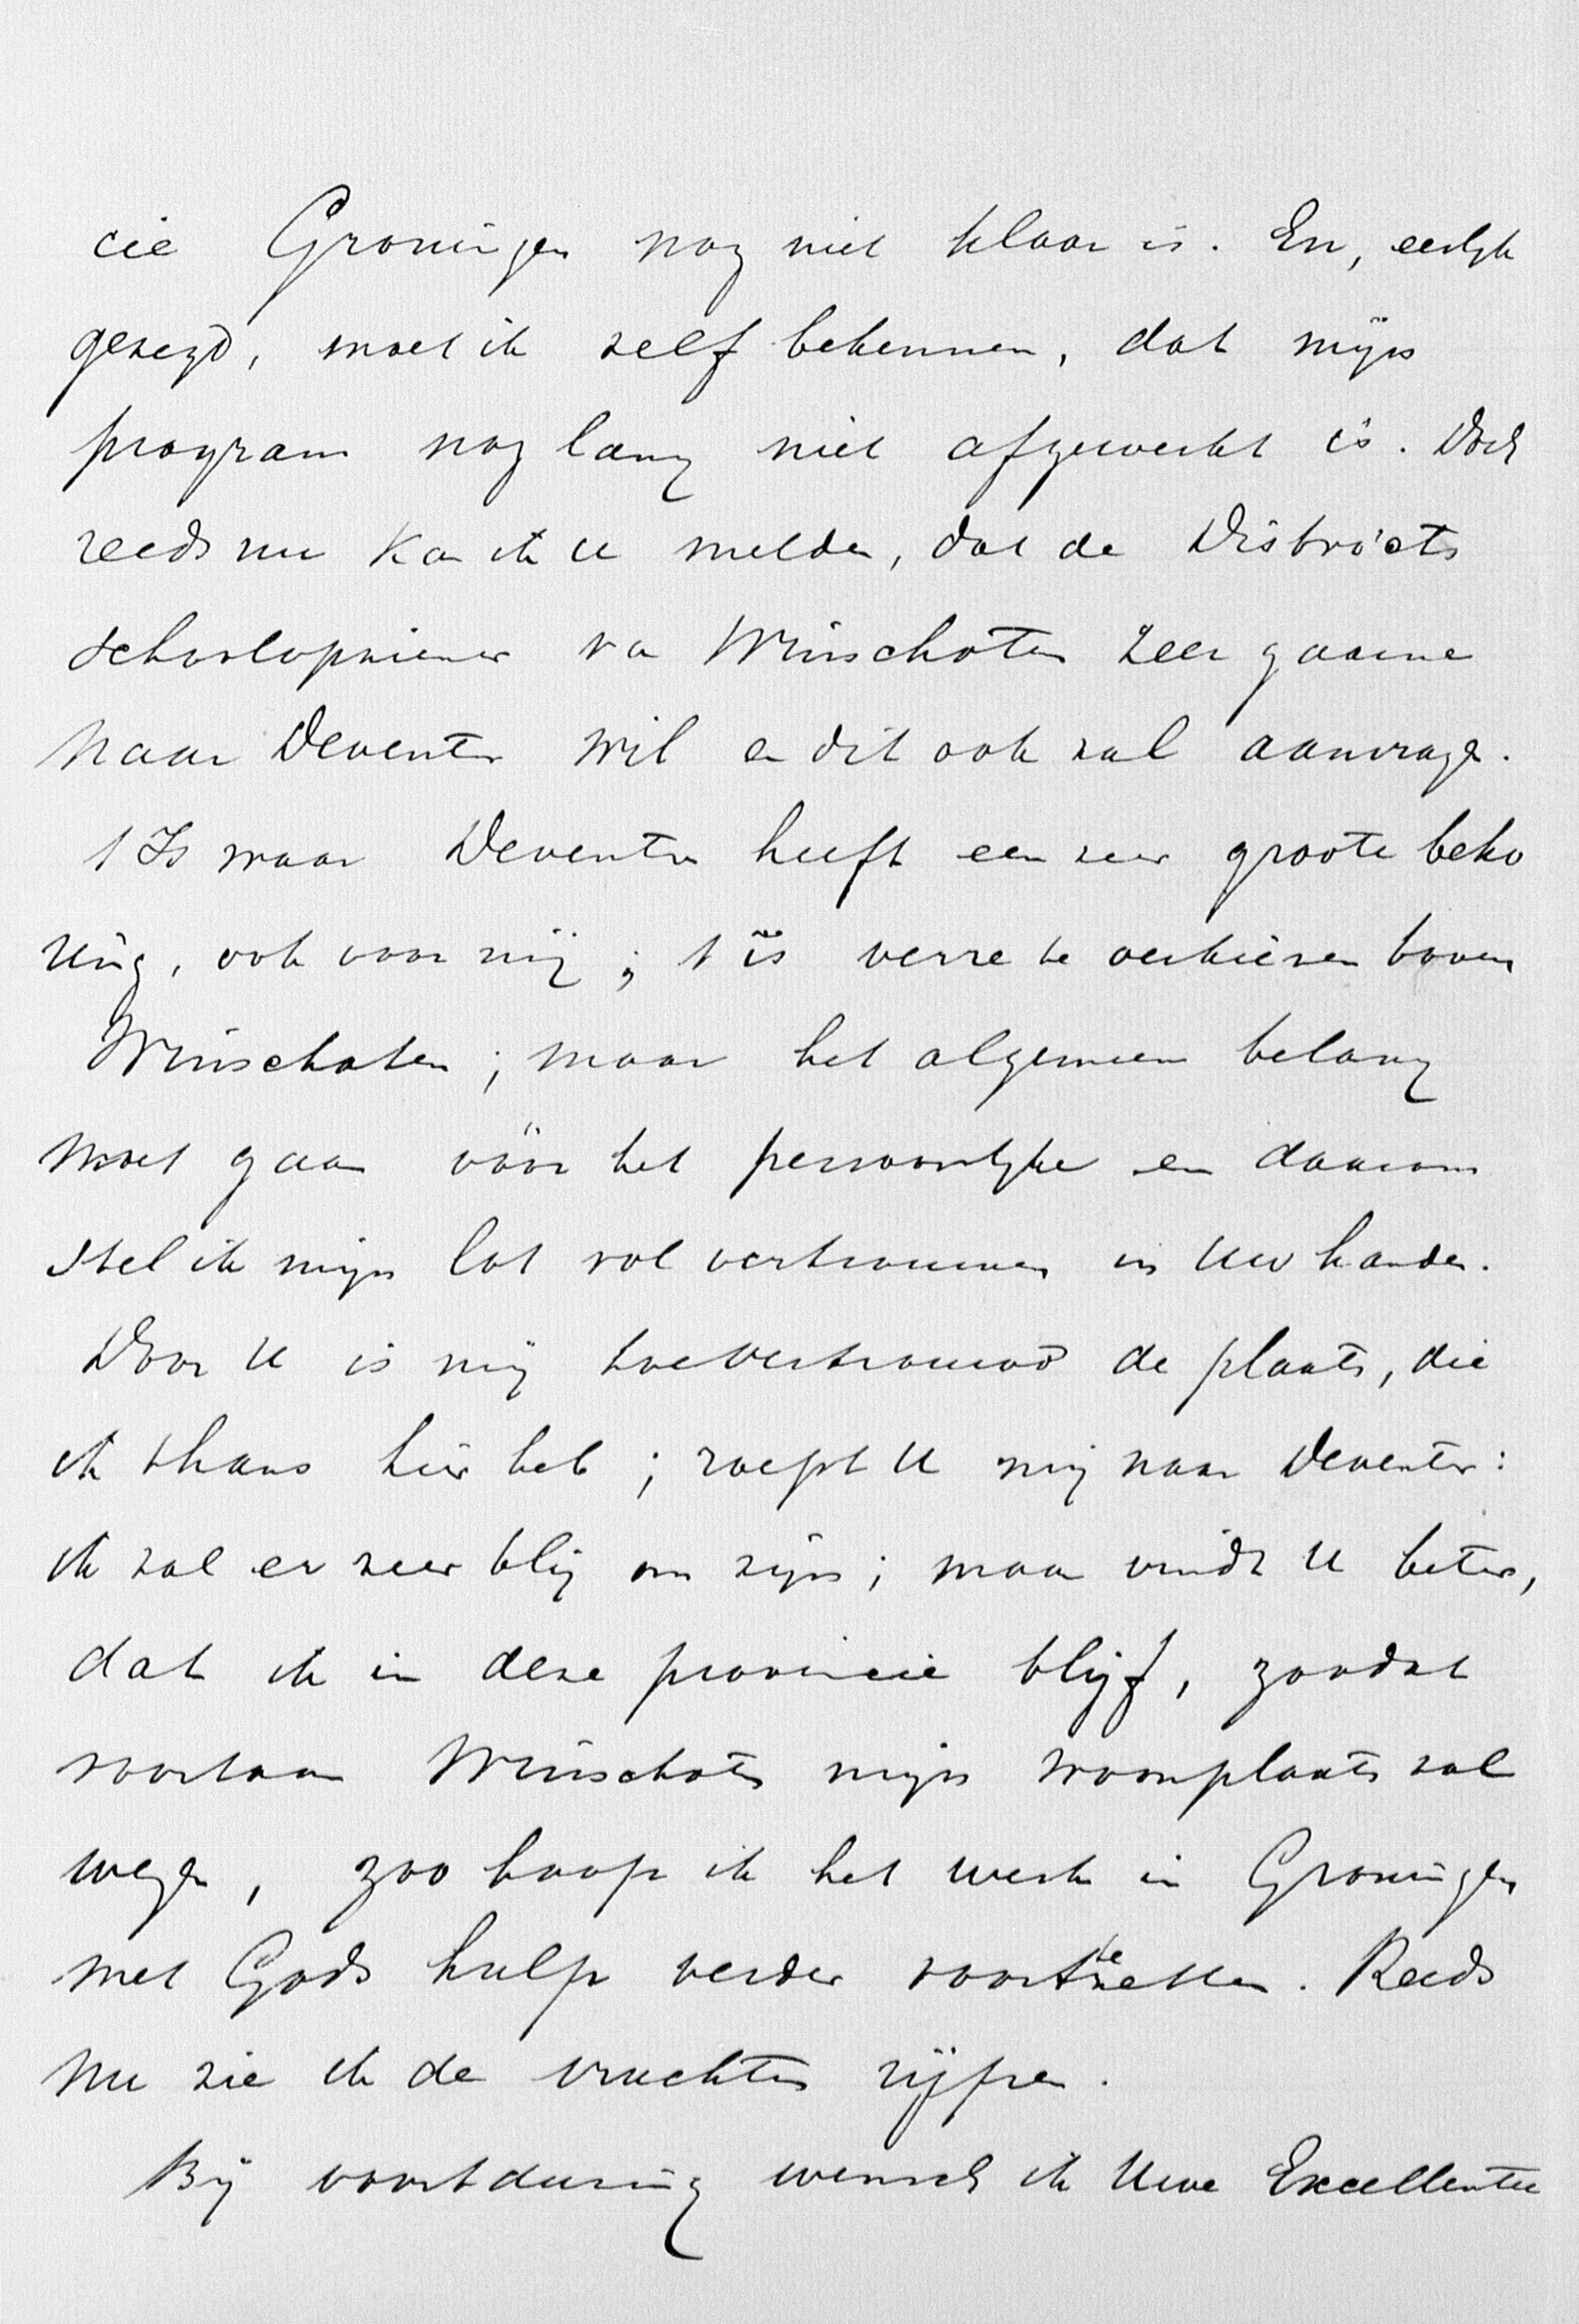 cie Groningen nog niet klaar is. En, eerlijk
gezegd, moet ik zelf bekennen, dat mijn
program nog lang niet afgewerkt is. Doch
reeds nu kan ik U melden, dat de Districts
schoolopziener van Winschoten zeer gaarne
naar Deventer wil en dit ook zal aanvragen.
't Is waar Deventer heeft een zeer groote beko
ring, ook voor mij; 't is verre te verkiezen boven
Winschoten; maar het algemeen belang
moet gaan vóór het persoonlijke en daarom
stel ik mijn lot vol vertrouwen in Uw handen.
Door U is mij toevertrouwd de plaats, die
ik thans hier heb; roept U mij naar Deventer:
ik zal er zeer blij om zijn; maar vindt U beter,
dat ik in deze provincie blijf, zoodat
voortaan Winschoten mijn woonplaats zal
wezen, zoo hoop ik het werk in Groningen
met Gods hulp verder voort te zetten. Reeds
nu zie ik de vruchten rijpen.
Bij voortduring wensch ik Uwe Excellentie